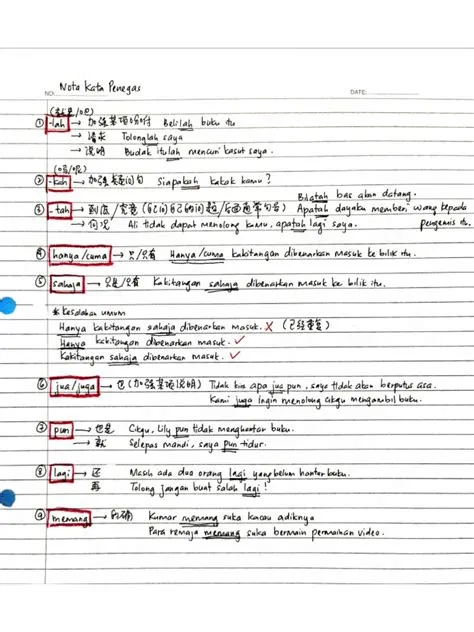 NO: Nota Kata Penegas DATE:
(就是/吧)
① -lah → 加强某项吩咐 Belilah buku itu
→ 请求 Tolonglah saya
→ 说明 Budak itulah mencuri kasut saya.
(吗/呢)
② -kah → 加强疑问句 Siapakah kakak kamu?
Bilatah bas akan datang.
③ -tah → 到底/究竟 Apatah dayaku memberi wang kepada
→ 何况 Ali tidak dapat menolong kamu, apatah lagi saya. pengemis tu.
④ hanya/cuma → 只/只有 Hanya/cuma kakitangan dibenarkan masuk ke bilik itu.
⑤ sahaja → 只是/只有 Kakitangan sahaja dibenarkan masuk ke bilik itu.
* Kesalahan umum
Hanya kakitangan sahaja dibenarkan masuk. ✗ (已经重复)
Hanya kakitangan dibenarkan masuk. ✓
Kakitangan sahaja dibenarkan masuk. ✓
⑥ jua/juga → 也 (加强某项说明) Tidak kira apa jua pun, saya tidak akan berputus asa.
Kami juga ingin menolong cikgu mengambil buku.
⑦ pun → 也是 Cikgu, Lily pun tidak menghantar buku.
→ 就 Selepas mandi, saya pun tidur.
⑧ lagi → 还 Masih ada dua orang lagi yang belum hantar buku.
再 Tolong jangan buat salah lagi!
⑨ memang → 的确 Kumar memang suka kacau adiknya
Para remaja memang suka bermain permainan video.